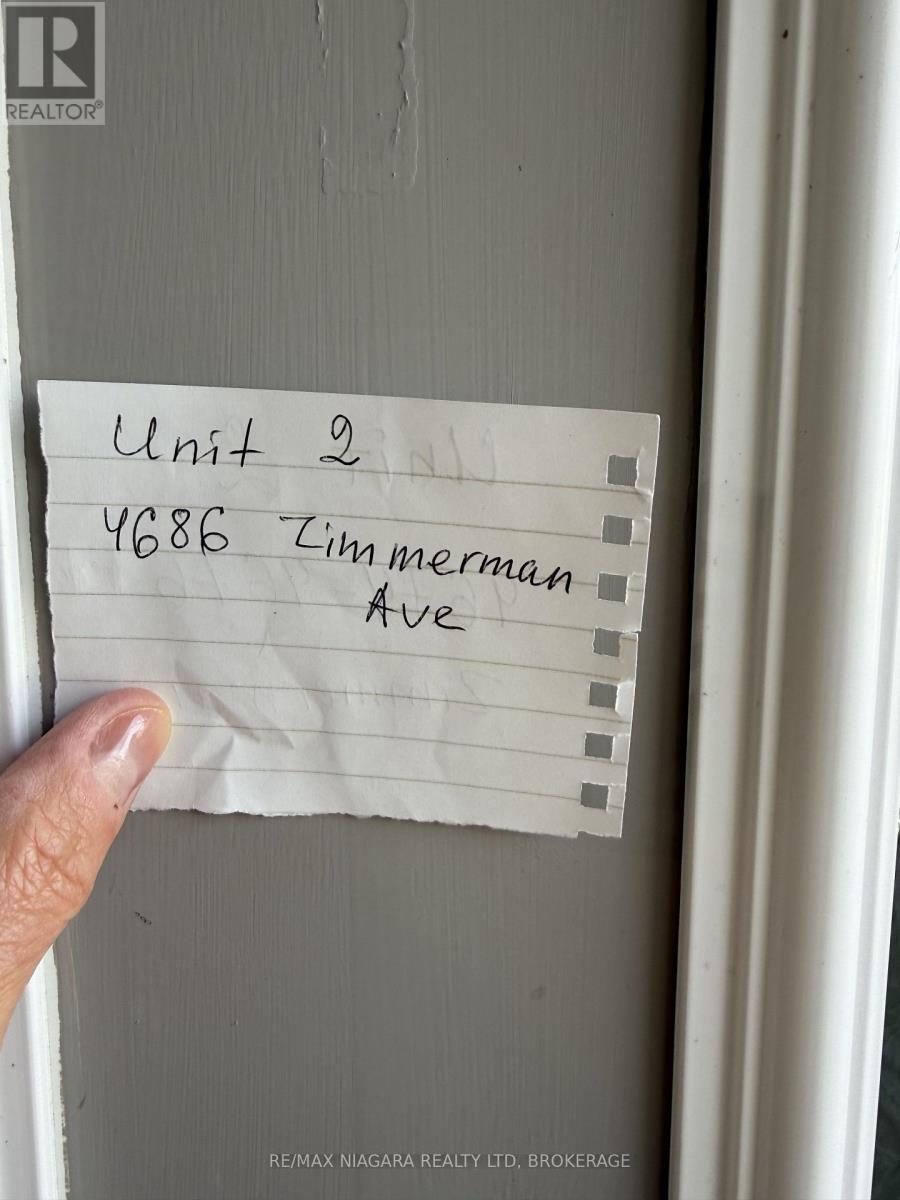 R
REALTOR®
Unit 2
4686 Zimmerman
Ave
RE/MAX NIAGARA REALTY LTD, BROKERAGE